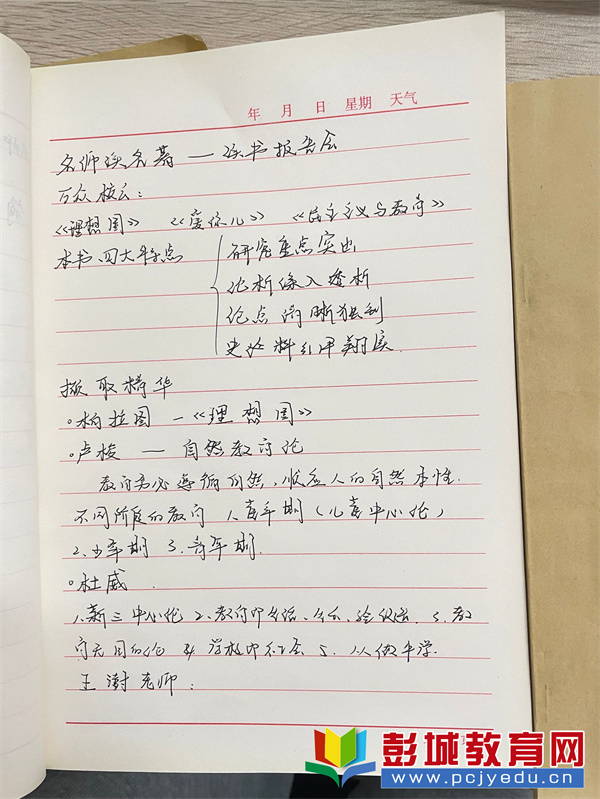 年 月 日 星期 天气
名师谈名著 — 读书报告会
《理想国》 《爱弥儿》 《民主主义与教育》
本书四大特点
研究重点突出
论析深入透析
论点清晰独到
史料引用翔实
撷取精华
·柏拉图 —《理想国》
·卢梭 — 自然教育论
教育务必遵循自然，顺应人的自然本性.
不同阶段的教育 1、童年期（儿童中心论）
2、少年期 3、青年期
·杜威
1、新三中心论 2、教育即生活、生长、经验改造 3、教
育无目的论 4、学校即社会 5、从做中学
王澍老师：
彭城教育网
www.pcjyedu.cn